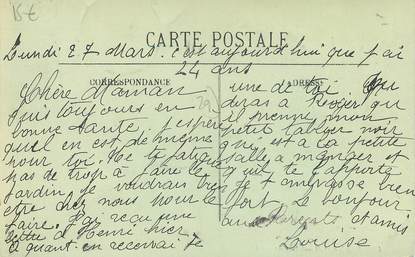 15€
Lundi 27 Mars. c'est aujourd'hui que j'ai
CARTE POSTALE
24 ans
CORRESPONDANCE
ADRESSE
Chère Maman
suis toujours en
bonne santé. j'espère
quel en est de même
pour toi. Ne te fatigue
pas de trop à faire le
jardin, je voudrais bien
etre chez nous pour le
faire. J'ai reçu une
lettre d'Henri hier
et quant en recevrai je
une de toi. Tu
diras a Roger qu
il prenne mon
petit tablier noir
qui est a la petite
salle a manger et
qu'il te l'apporte
Je t'embrasse bien
fort. Le bonjour
aux Parents et amis
Louise